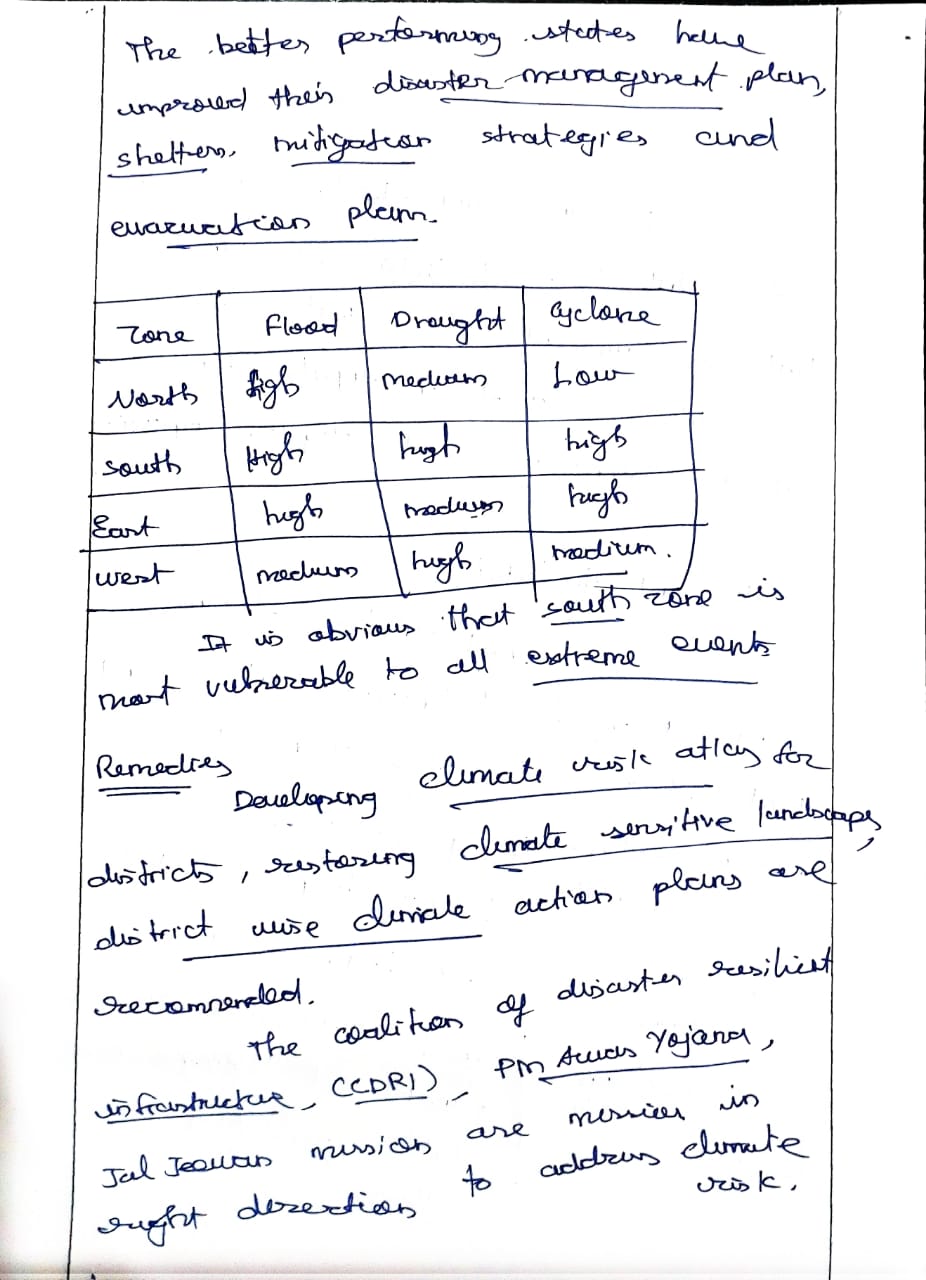 The better performing states have
improved their disaster management plan,
shelters, mitigation strategies and
evacuation plan.
Zone Flood Drought Cyclone
North High medium Low
South High high high
East high medium high
west medium high medium.
It is obvious that south zone is
most vulnerable to all extreme events
Remedies
Developing climate risk atlas for
districts, restoring climate sensitive landscaps,
district wise climate action plans are
recommended.
The coalition of disaster resilient
infrastructure, (CDRI), PM Awas Yojana,
Jal Jeevan mission are in
right direction to address climate
risk.